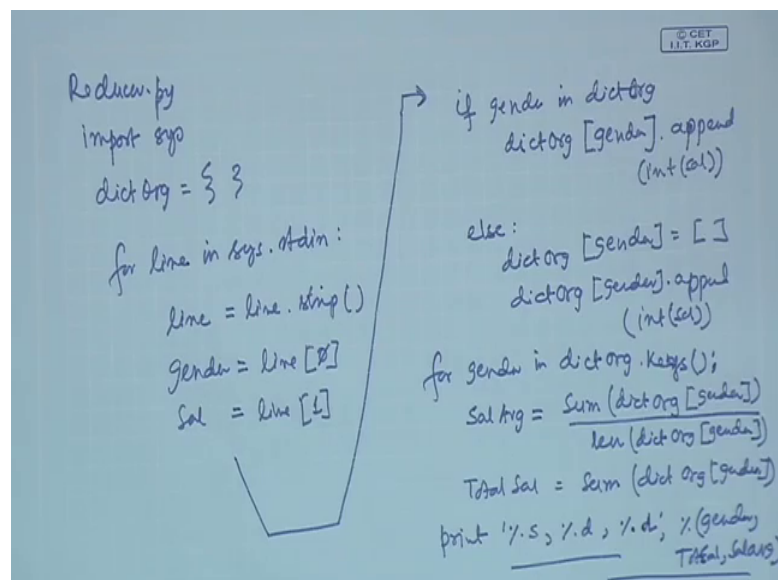 © CET
I.I.T. KGP
Reducer.py
import sys
dictOrg = { }
for line in sys.stdin:
line = line.strip()
gender = line[0]
Sal = line[1]
if gender in dictOrg
dictOrg [gender].append
(int(sal))
else:
dictOrg [gender] = [ ]
dictOrg [gender].append
(int(sal))
for gender in dictOrg.keys();
SalAvg = Sum (dictOrg [gender])
len (dictOrg [gender])
Total Sal = Sum (dict Org [gender])
print '%s, %d, %d', %(gender,
Total, SalAvg)